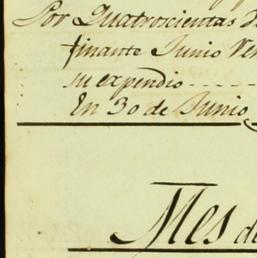 Por Quatroscientas
finante Junio Ven
su expendio
En 30 de Junio
Mes de